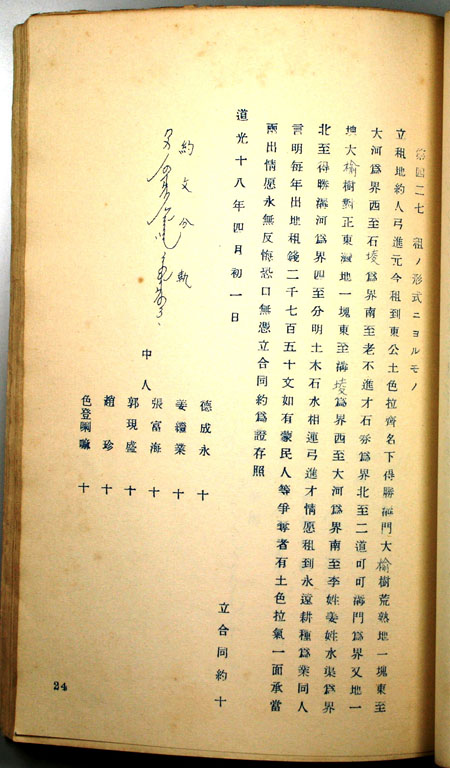 第四二七 租ノ形式ニヨルモノ
立租地約人弓進元今租到東公土色拉齊名下得勝溝門大榆樹荒熟地一塊東至
大河爲界西至石堎爲界南至老不進才石 爲界北至二道叮叮溝門爲界又地一
塊大榆樹對正東灘地一塊東至溝堎爲界西至大河爲界南至李姓姜姓水渠爲界
北至得聯溝河爲界四至分明土木石水相連弓進才情愿租到永遠耕種爲業同人
言明每年出地租錢二千七百五十文如有蒙民人等爭奪者有土色拉氣一面承當
兩出情愿永無反悔恐口無憑立合同約爲證存照
道光十八年四月初一日
立合同約十
約文合執
中人
德成永 十
姜 業 十
張富海 十
郭現盛 十
趙珍 十
色登 嘛 十
24